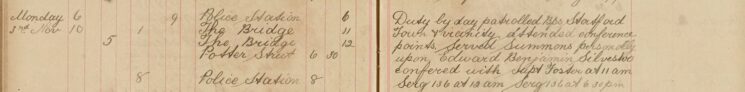 Monday 6 9 Police Station 6 Duty by day patrolled Bps Statford
3rd Nov 10 1 The Bridge 11 Town & vicinity attended conference
5 The Bridge 12 points, Served Summons personally
Potter Street 6 30 upon Edward Benjamin Silvester
conferred with Supt Foster at 11 am
8 Police Station 8 Serg 136 at 12 am Serg 136 at 6 30 pm